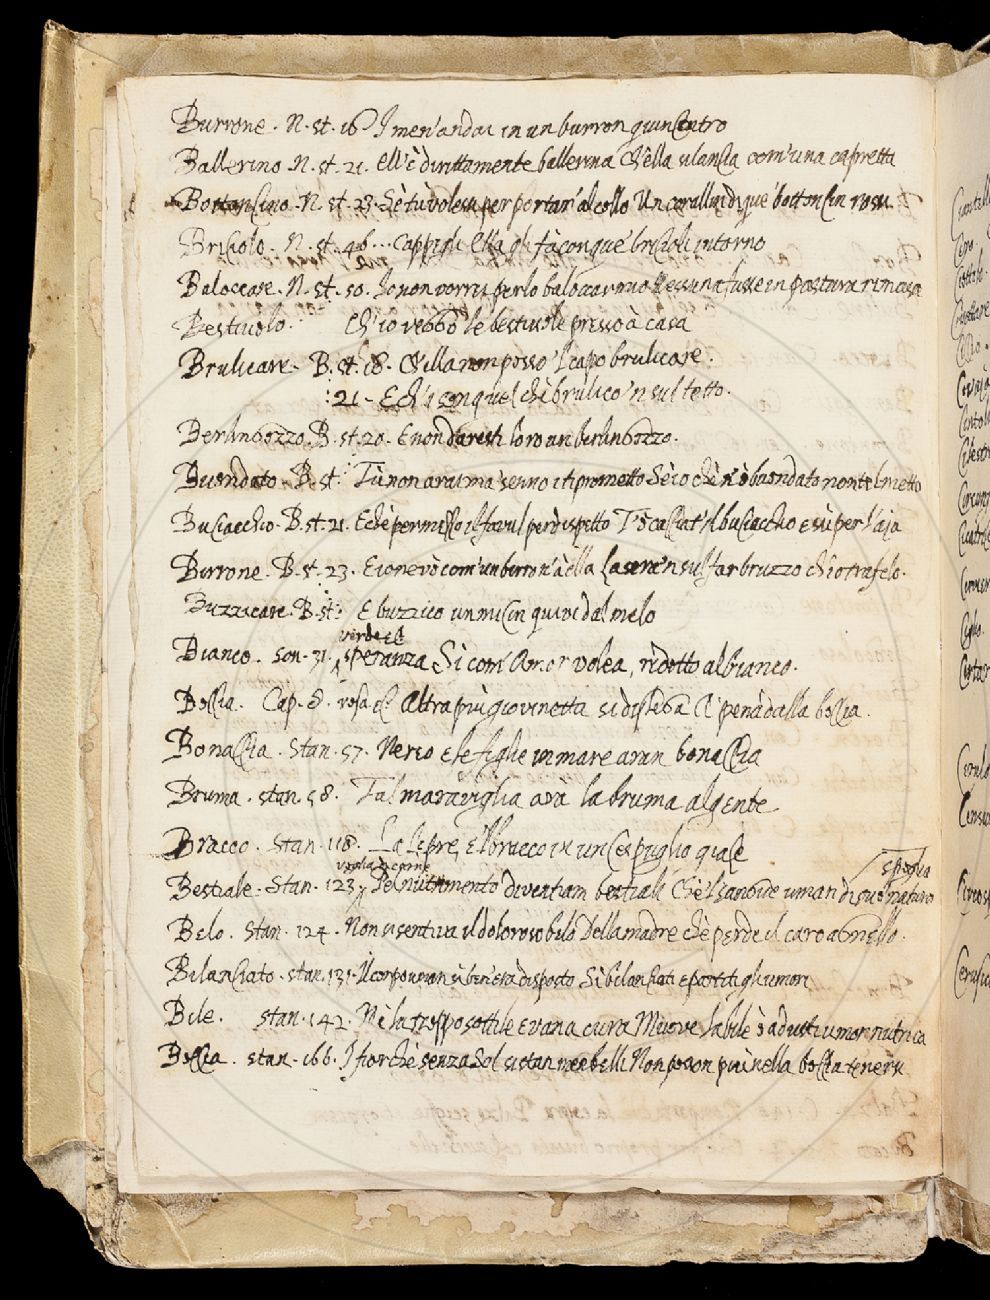 Burrone. N. st. 16 I men'andai in un burron quincentro
Ballerino. N. st. 21. Ell'è dirittamente ballerina Ch'ella si lancia com'una capretta
Bottoncino. N. st. 23. Se tu volessi per portar' al collo Un corallin di que' bottoncin rossi
Briciolo. N. st. 46... Cappegli Ella gli fà con que' bricioli intorno
Baloccare. N. st. 50. Io non vorrei perlo baloccar mio Nessuna fusse in pastura rimasa
Bestiuolo. Ch'io rebbo le bestiuole presso à casa
Brulicare. B. st. 18. Ch'ella non posso 'l capo brulicare.
21 - Ech'i son quel chè brulico 'n sul tetto.
Berlingozzo. B. st. 20. E non daresti loro un berlingozzo.
Buondato. B. st. Tù non arai ma' senno i ti prometto Sèco che n'è buondato
Busciacchio. B. st. 21. E chè per dispetto T'ò cacciat' il busciacchio e sù per l'aia
Birrone. B. st. 23. E io ne vò com' un birron' à ella La sera 'n sul far bruzzo ch'io trafelo.
Buzzicare. B. st. E buzzico un micin quivi dal melo
verde el
Bianco. son. 31. speranza Si com' Amor volea, ridotto al bianco.
Boccia. Cap. 8. rosa el Altra più giovinetta si dislega A pena dalla boccia.
Bonaccia. Stan. 57. Nereo e le figlie in mare aran bonaccia
Bruma. stan. 58. Tal maraviglia avea la bruma algente
Bracco. Stan. 118. La Lepre, e'l bracco in un cespuglio giace
spoglia
Bestiale. Stan. 123. Pel nutrimento diventiam bestiali Che 'l sangue uman di suo natura
Belo. Stan. 124. Non si sentiva il doloroso belo Della madre chè perde il caro agnello.
Bilanciato. stan. 131. Il corpo uman si ben' era disposto Si bilanciati e partiti gli umori
Bile. stan. 142. Nè la troppo sottile e vana cura Muove la bile è adusti umor nutrica
Boccia. stan. 166. I fior chè senza Sol si stan men belli Non posson più nella boccia tenersi